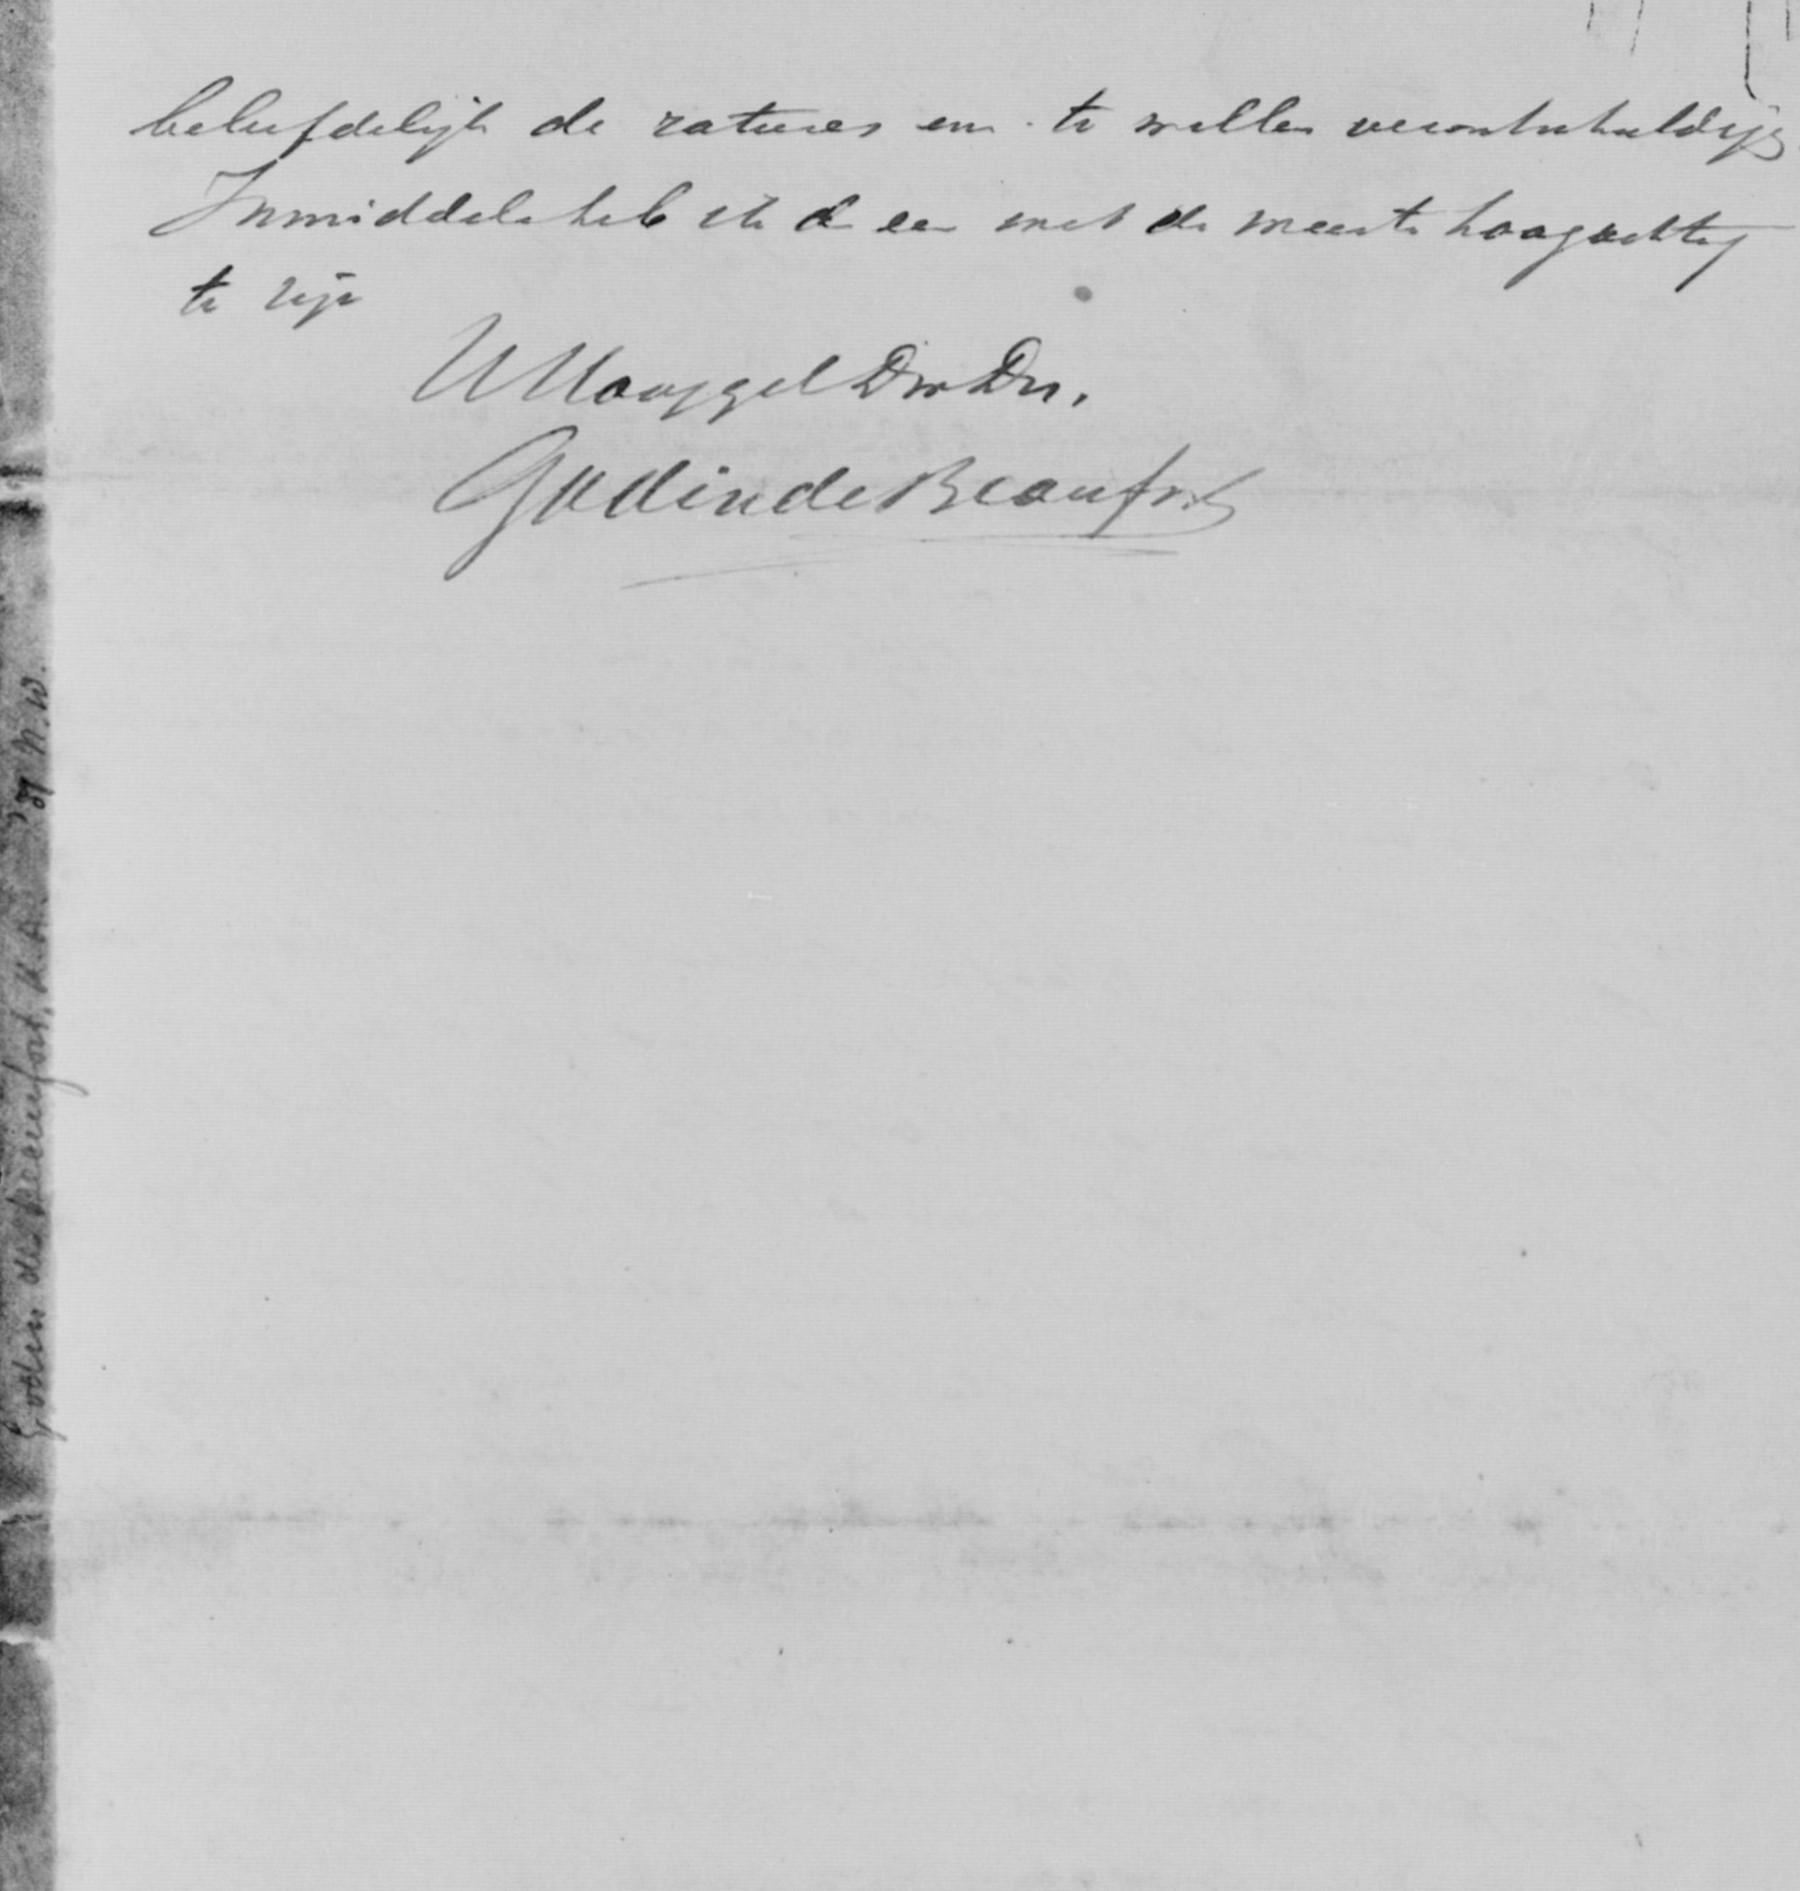 beleefdelijk de ratures enz. te willen verontschuldigen
Inmiddels heb ik de eer met de meeste hoogachting
te zijn
UHooggel DwDr.
Godin de Beaufort
Godin de Beaufort, K.A. '87 N.W.